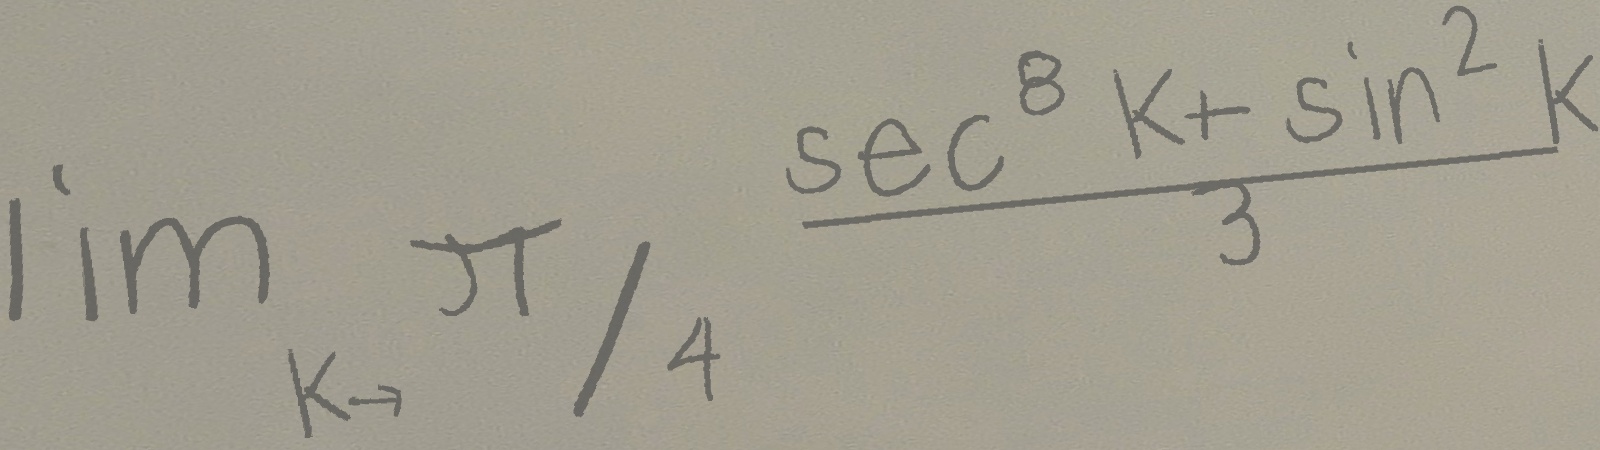 \lim_{k \to \pi/4} \frac{\sec^8 k + \sin^2 k}{3}